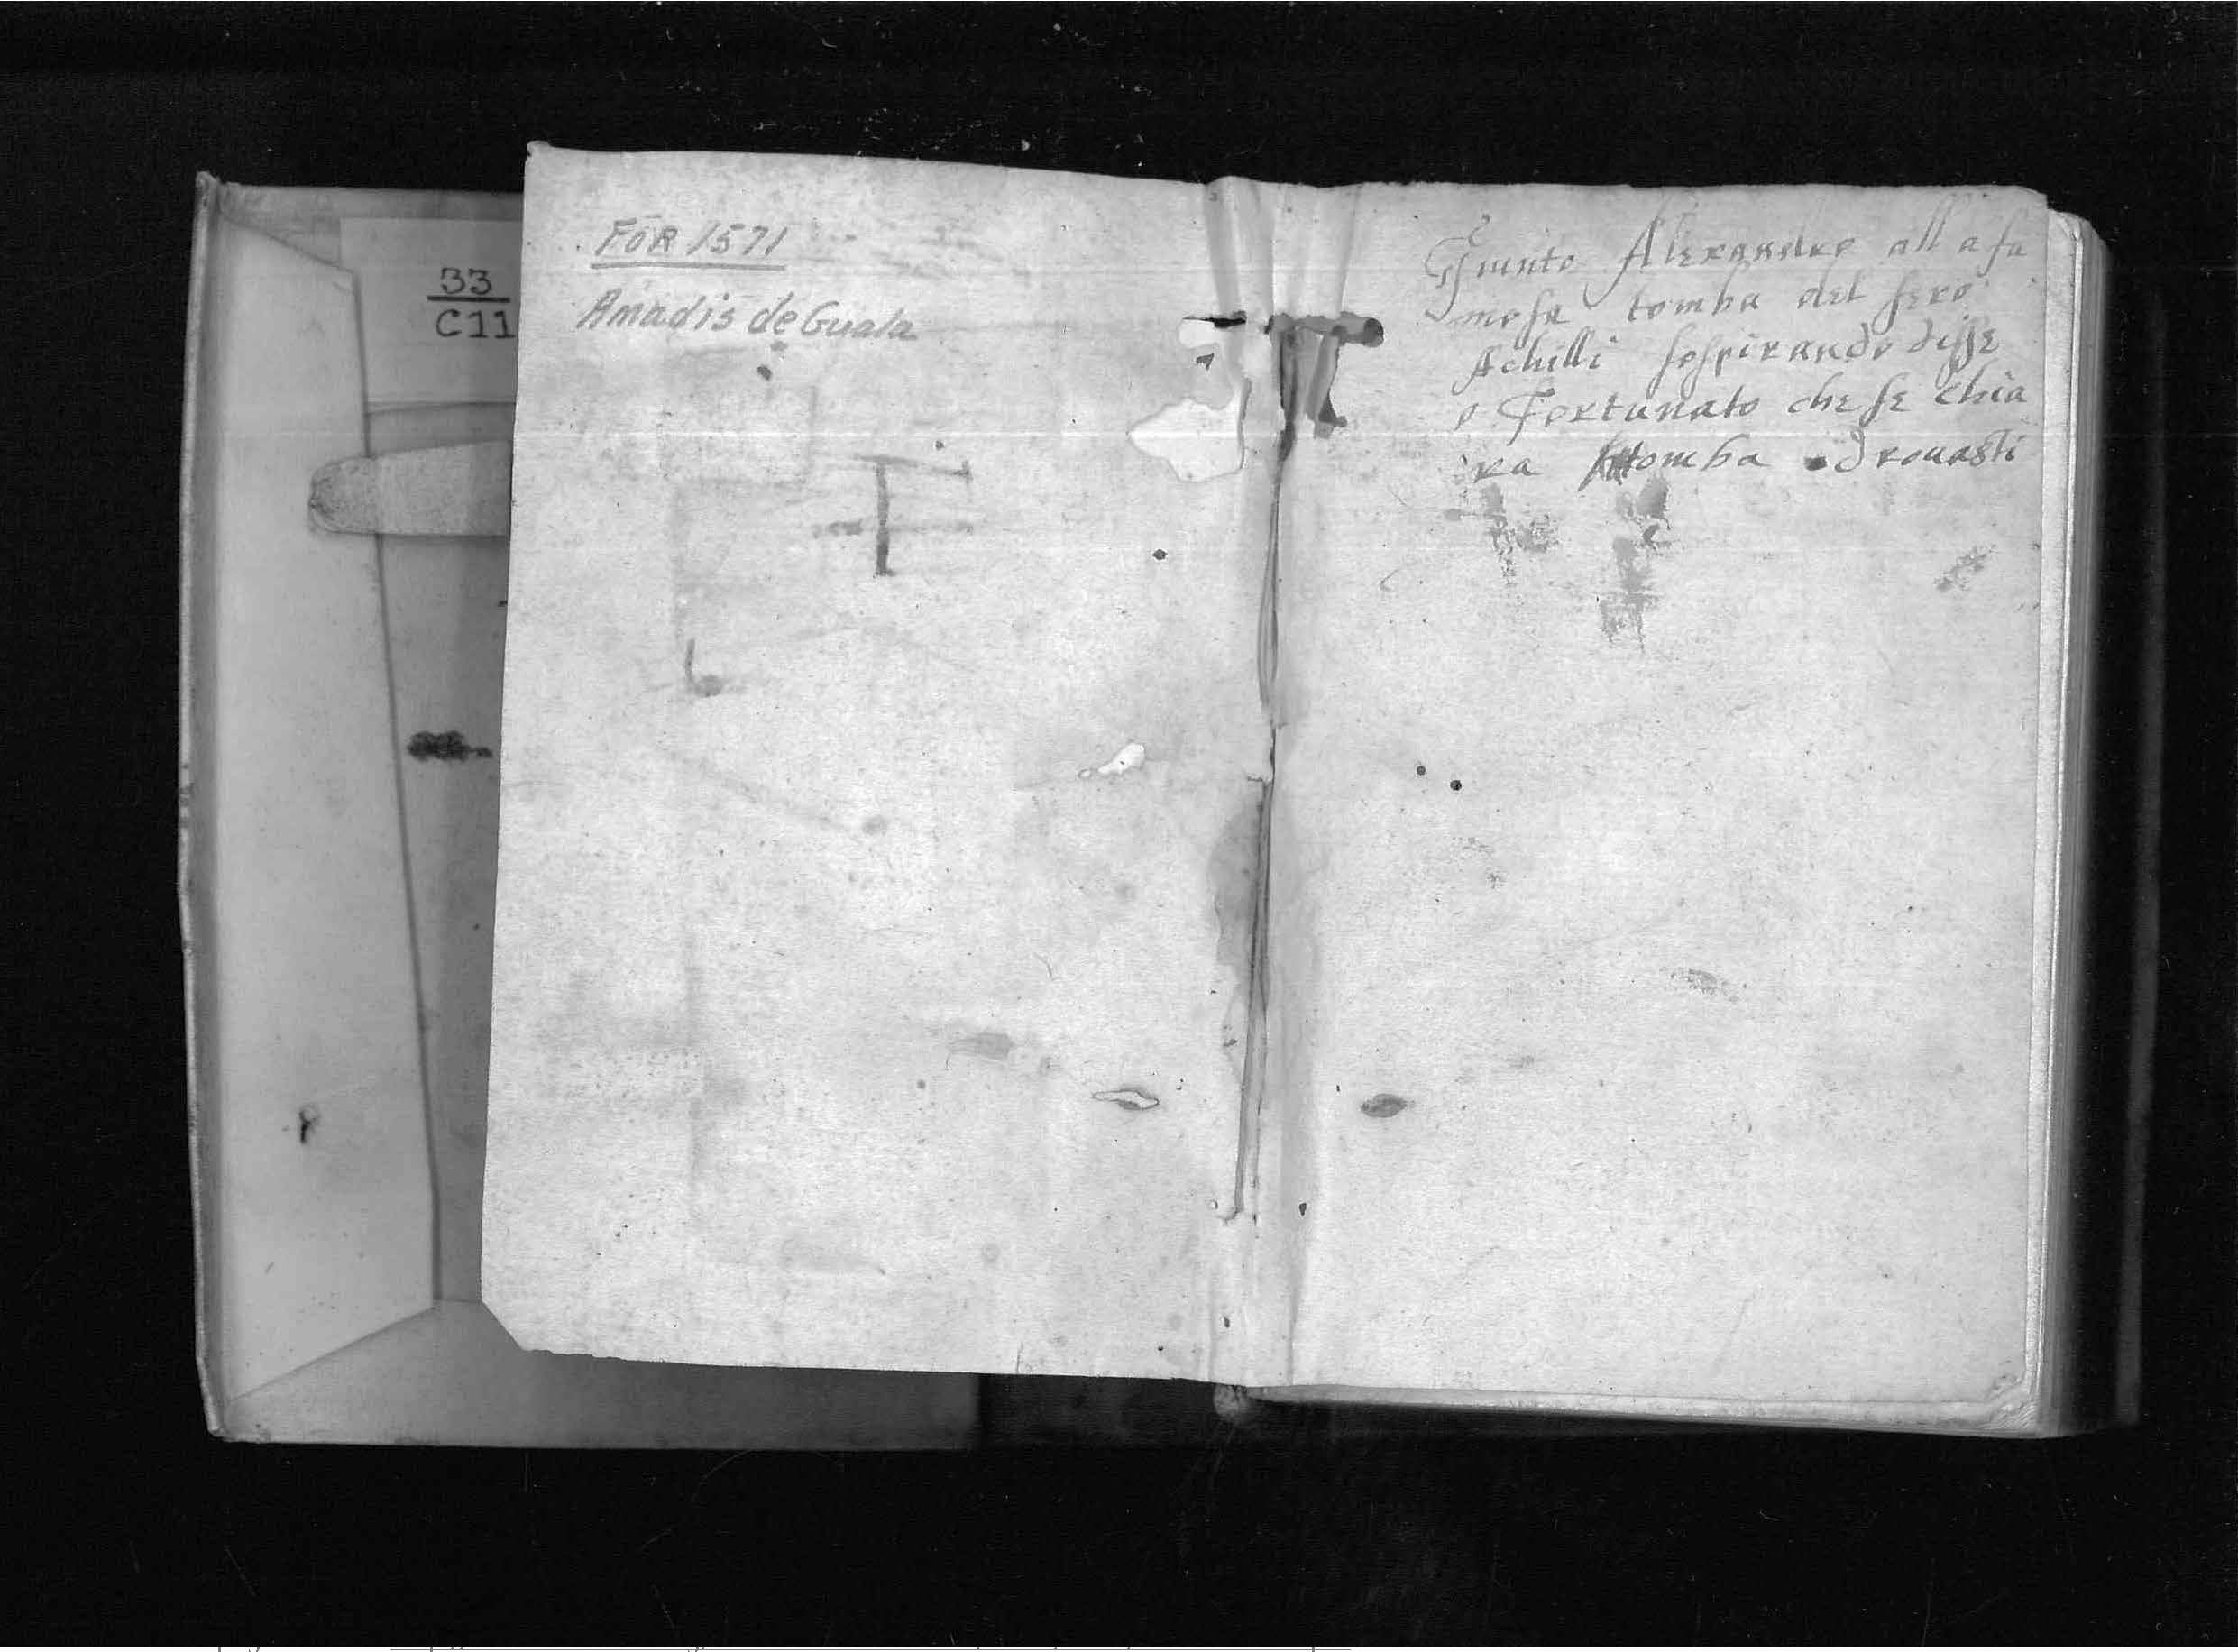 33
C11
FOR 1571
Amadis de Guala
T
Giunto Alexandro all a fa
mosa tomba del fero
Achilli sospirando disse
o Fortunato che se chia
ra tomba drouasti